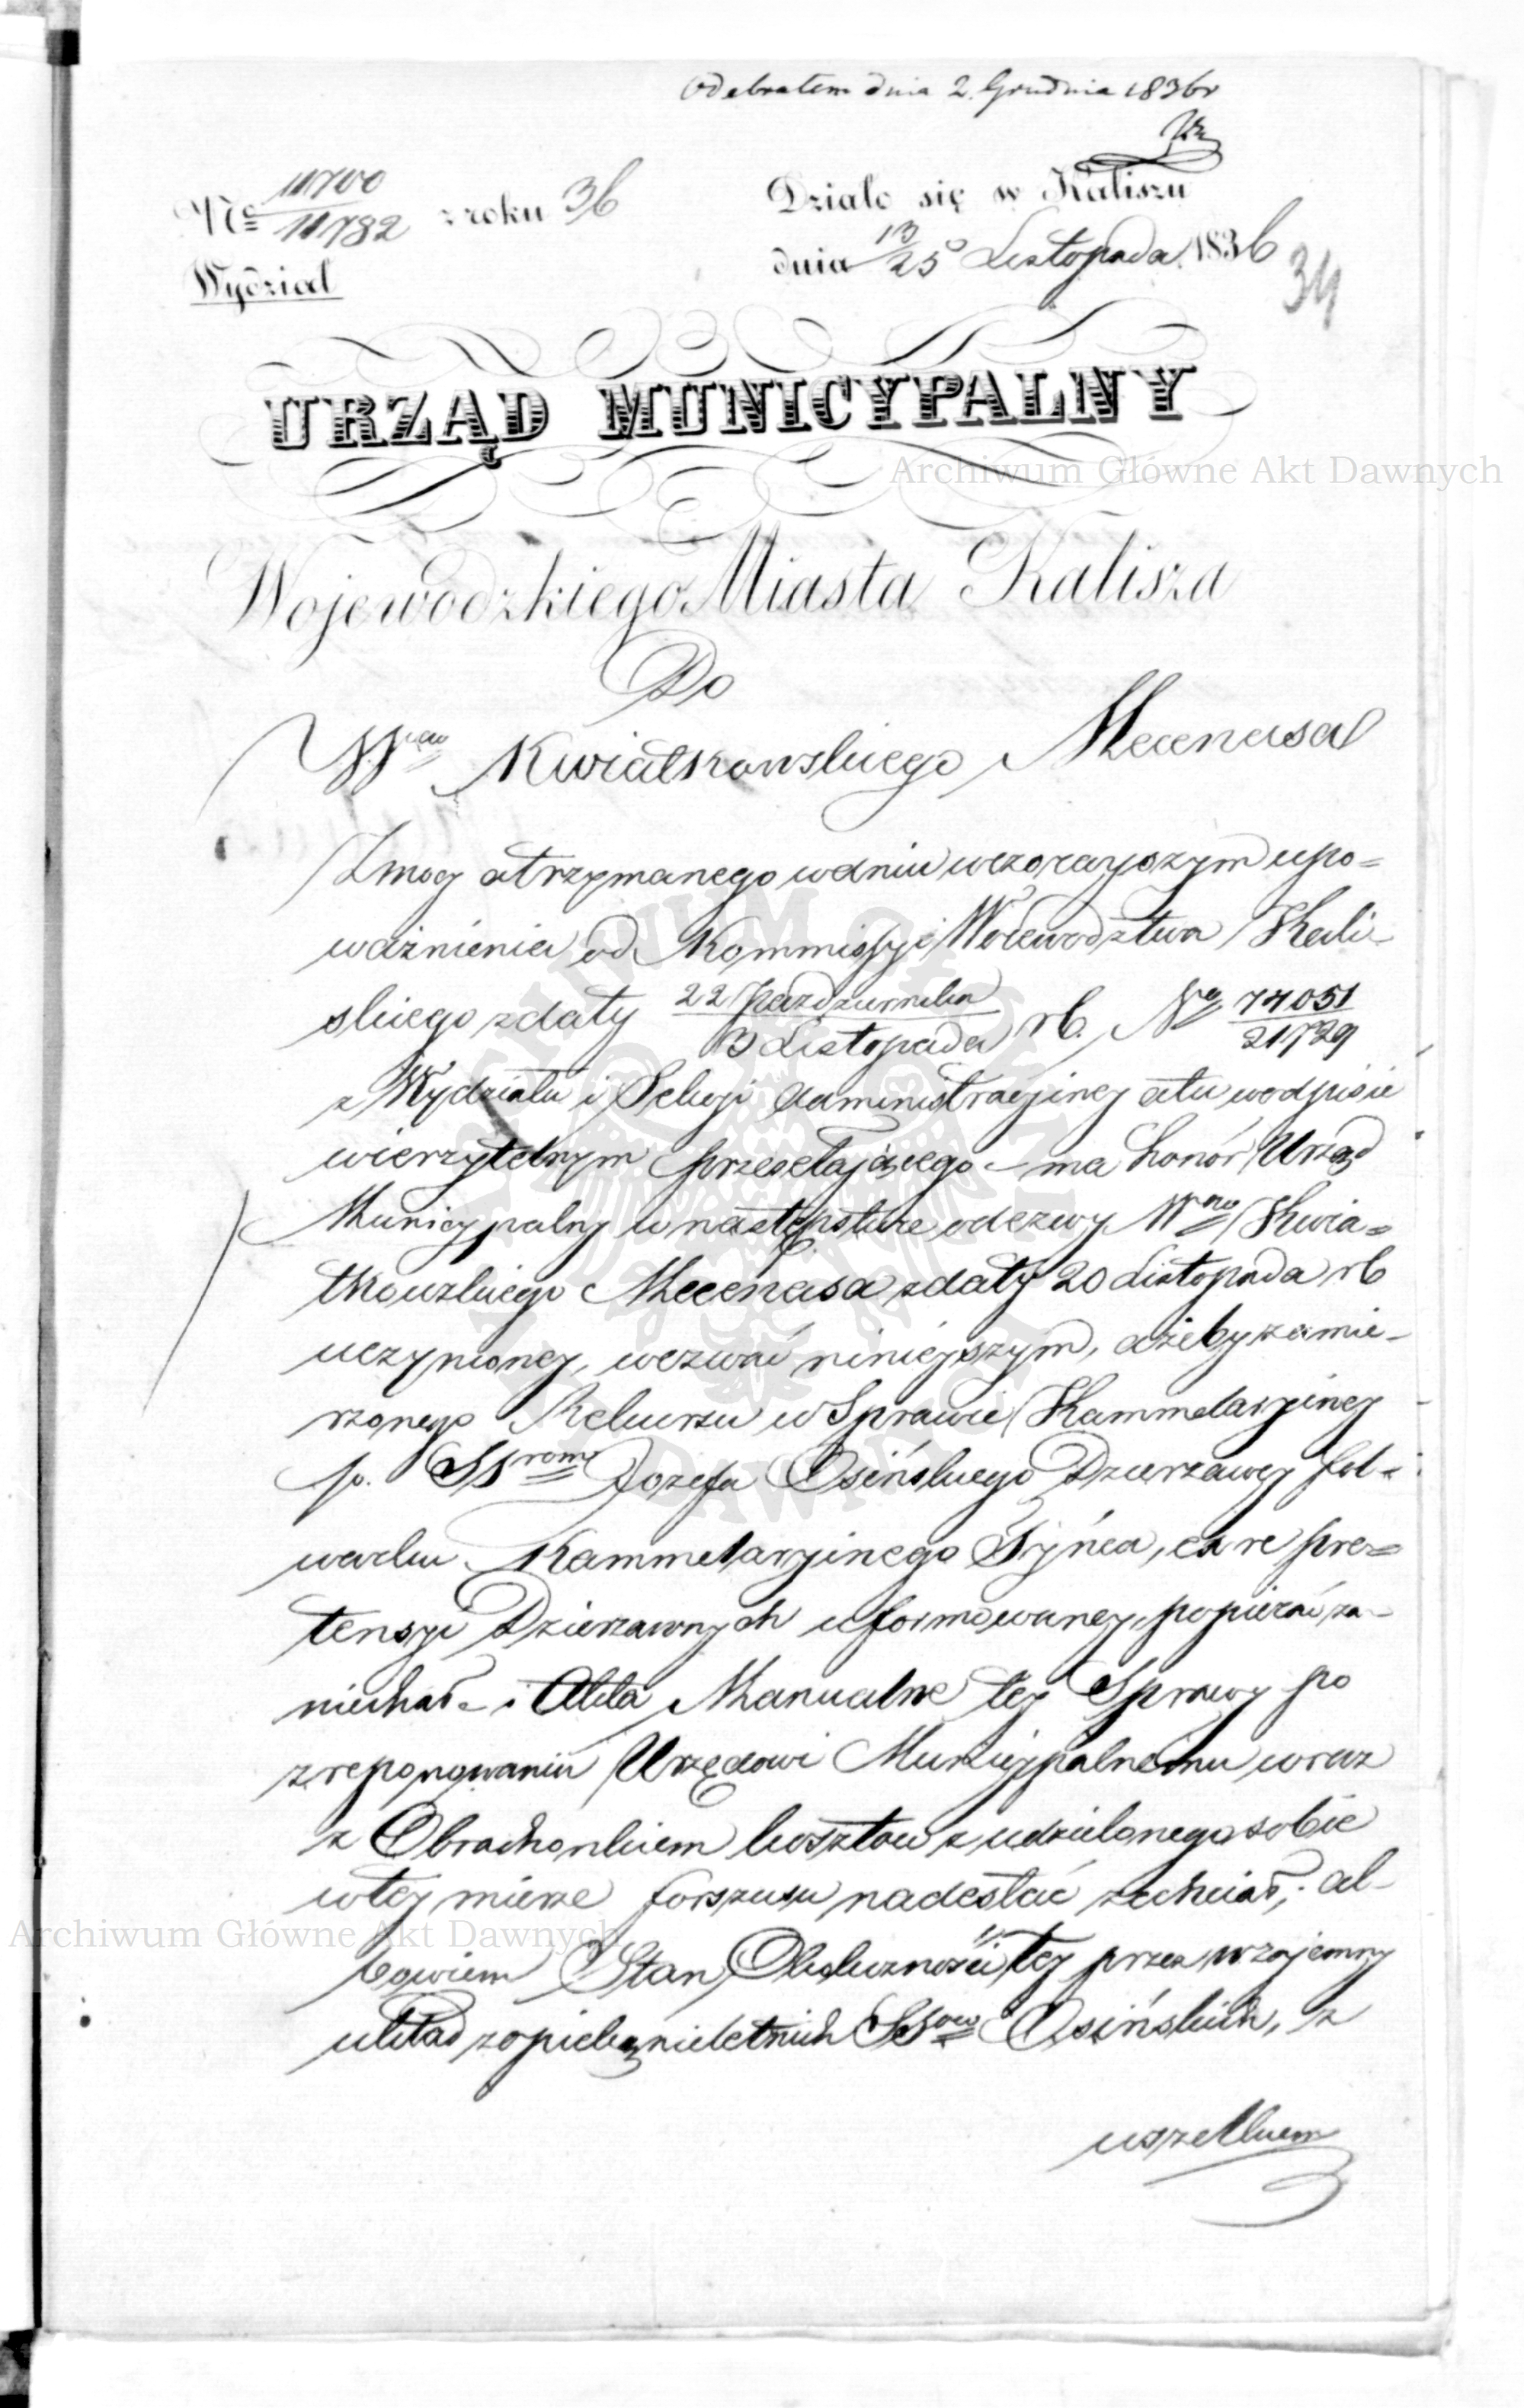 Odebrałem dnia 2. Grudnia 1836r
No 11700/11782 z roku 36
Działo się w Kaliszu
dnia 13/25o Listopada 1836
34
Wydział
URZĄD MUNICYPALNY
Archiwum Główne Akt Dawnych
Wojewodzkiego Miasta Kalisza
Do
Wgo Kwiatkowskiego Mecenasa
Zmocy otrzymanego wdniu wczorayszym upo=
ważnienia od Kommissyi Woiewodztwa Kali-
skiego zdaty 22 Pazdziernika/3 Listopada rb. No 74051/21729
z Wydziału i Sekcyi Administracyiney atu wodpisie
wierzytelnym przesełaiącego – ma honor Urząd
Municypalny wnastępstwie odezwy Wgo Kwia=
tkowskiego Mecenasa zdaty 20 Listopada rb
uczynioney, wezwać ninieyszym, ażeby zamie-
rzonego Rekursu w Sprawie Kammelaryiney
p. SSrom Jozefa Osińskiego Dzierzawcy fol=
warku Kammelaryinego Tyńca, ex re pre=
tensyi Dzierzawnych uformowaney, popierać za-
niechał – i Akta Manualne tey Sprawy po
zreponowaniu Urzędowi Municypalnemu wraz
z Obrachonkiem kosztow z udzielonego sobie
wtey mierze forszusu nadesłać zechciał; al-
Archiwum Główne Akt Dawnych
bowiem Stan Okoliczności tey przez wzajemny
układ zopieką nieletnich SSow Osińskich, z
wszelkiem